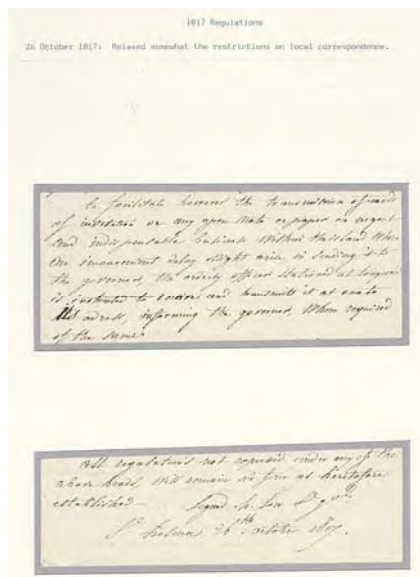 1817 Regulations
26 October 1817: Relaxed somewhat the restrictions on local correspondence.
To facilitate however the transmission of cards
of invitation or any open note or paper on urgent
and indispensable business within this island where
an inconvenient delay might arise in sending it to
the governor, the orderly officer stationed at longwood
is instructed to receive and transmit it at once to
its adress, informing the governor when required
of the same.
All regulations not expressed under any of the
above heads, still remain in force as heretofore
established
Signed H. Lowe
St helena 26th octobre 1817.